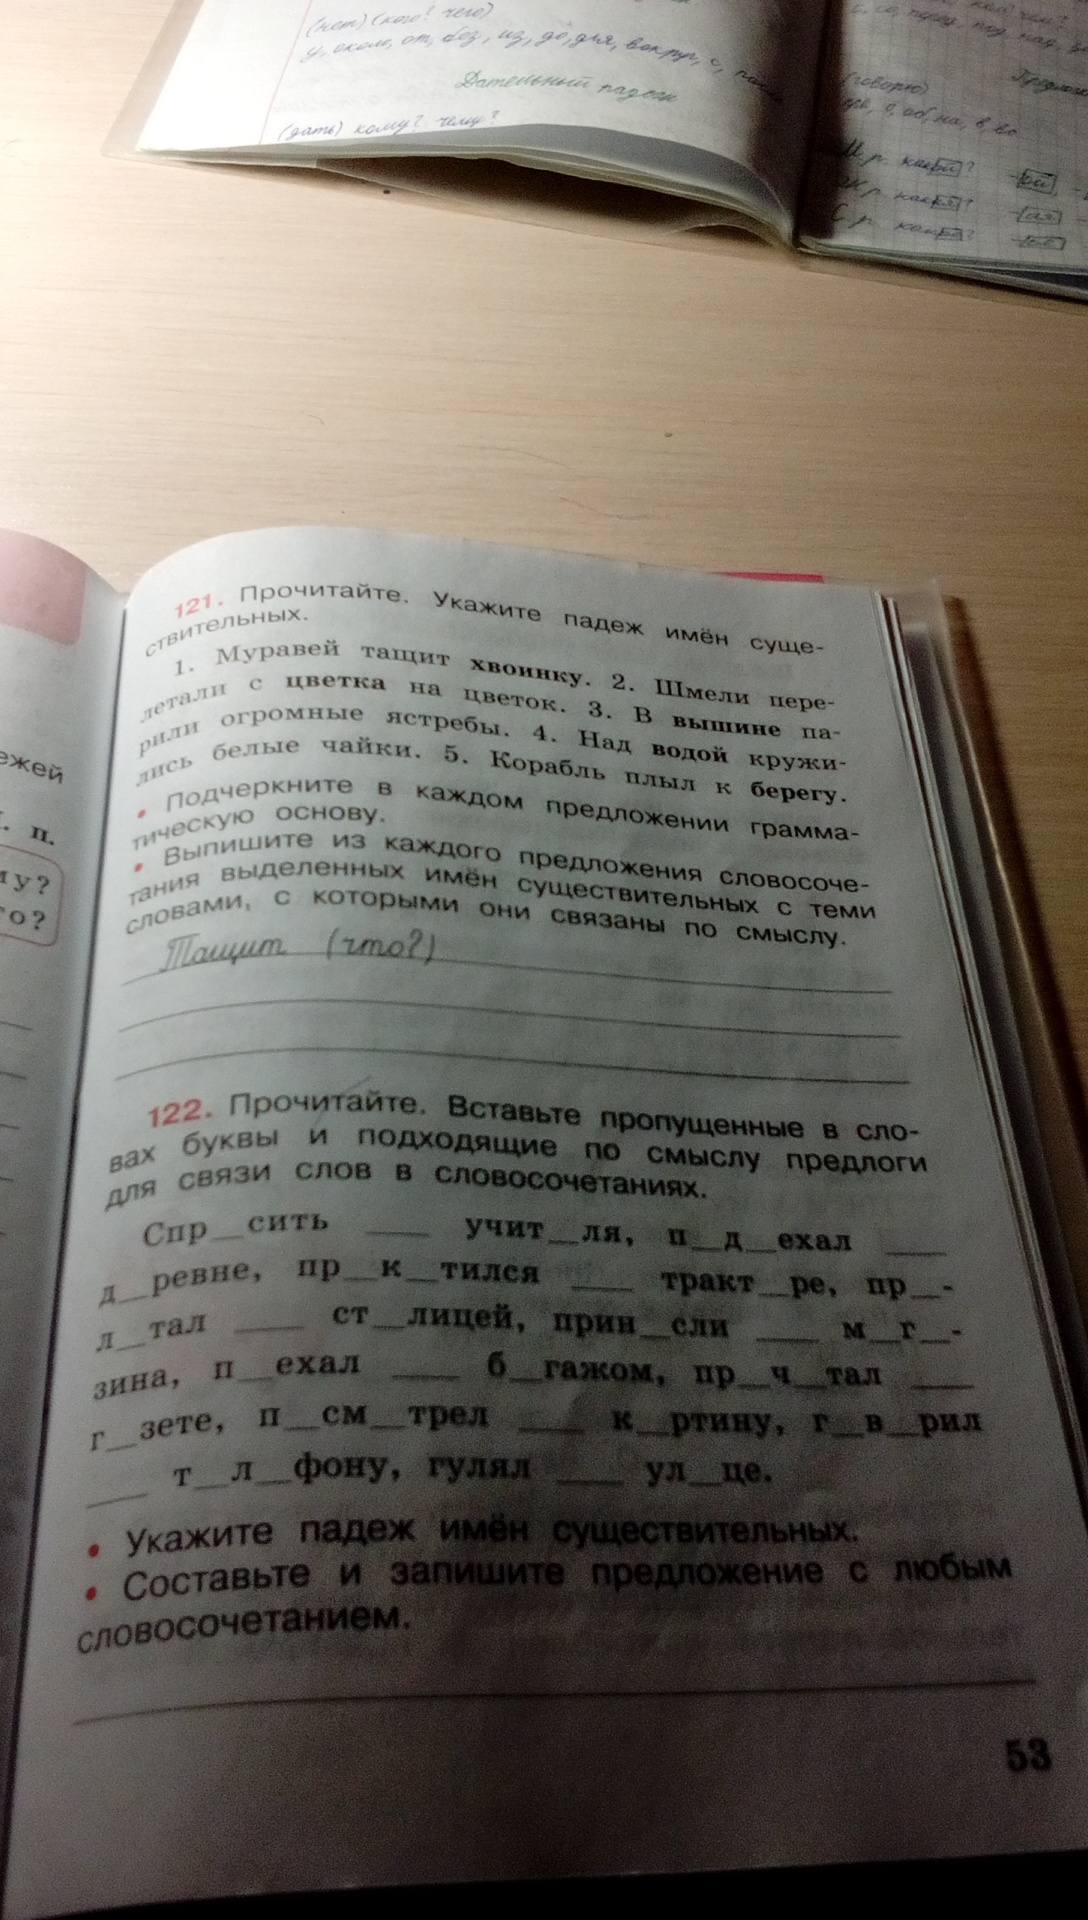 (нет) (кого? чего)
у, около, от, без, из, до, для, вокруг, с,
Дательный падеж
(дать) кому? чему?
(говорю)
о, об, на, в, во
М.р. какой?
р. какая?
С.р. какое?
121. Прочитайте. Укажите падеж имён суще-
ствительных.
1. Муравей тащит хвоинку. 2. Шмели пере-
летали с цветка на цветок. 3. В вышине па-
рили огромные ястребы. 4. Над водой кружи-
лись белые чайки. 5. Корабль плыл к берегу.
• Подчеркните в каждом предложении грамма-
тическую основу.
• Выпишите из каждого предложения словосоче-
тания выделенных имён существительных с теми
словами, с которыми они связаны по смыслу.
Тащит (что?)
122. Прочитайте. Вставьте пропущенные в сло-
вах буквы и подходящие по смыслу предлоги
для связи слов в словосочетаниях.
Спр_сить ___ учит_ля, п_д_ехал ___
д_ревне, пр_к_тился ___ тракт_ре, пр_-
л_тал ___ ст_лицей, прин_сли ___ м_г_-
зина, п_ехал ___ б_гажом, пр_ч_тал ___
г_зете, п_см_трел ___ к_ртину, г_в_рил
___ т_л_фону, гулял ___ ул_це.
• Укажите падеж имён существительных.
• Составьте и запишите предложение с любым
словосочетанием.
53
ежей
п.
му?
го?